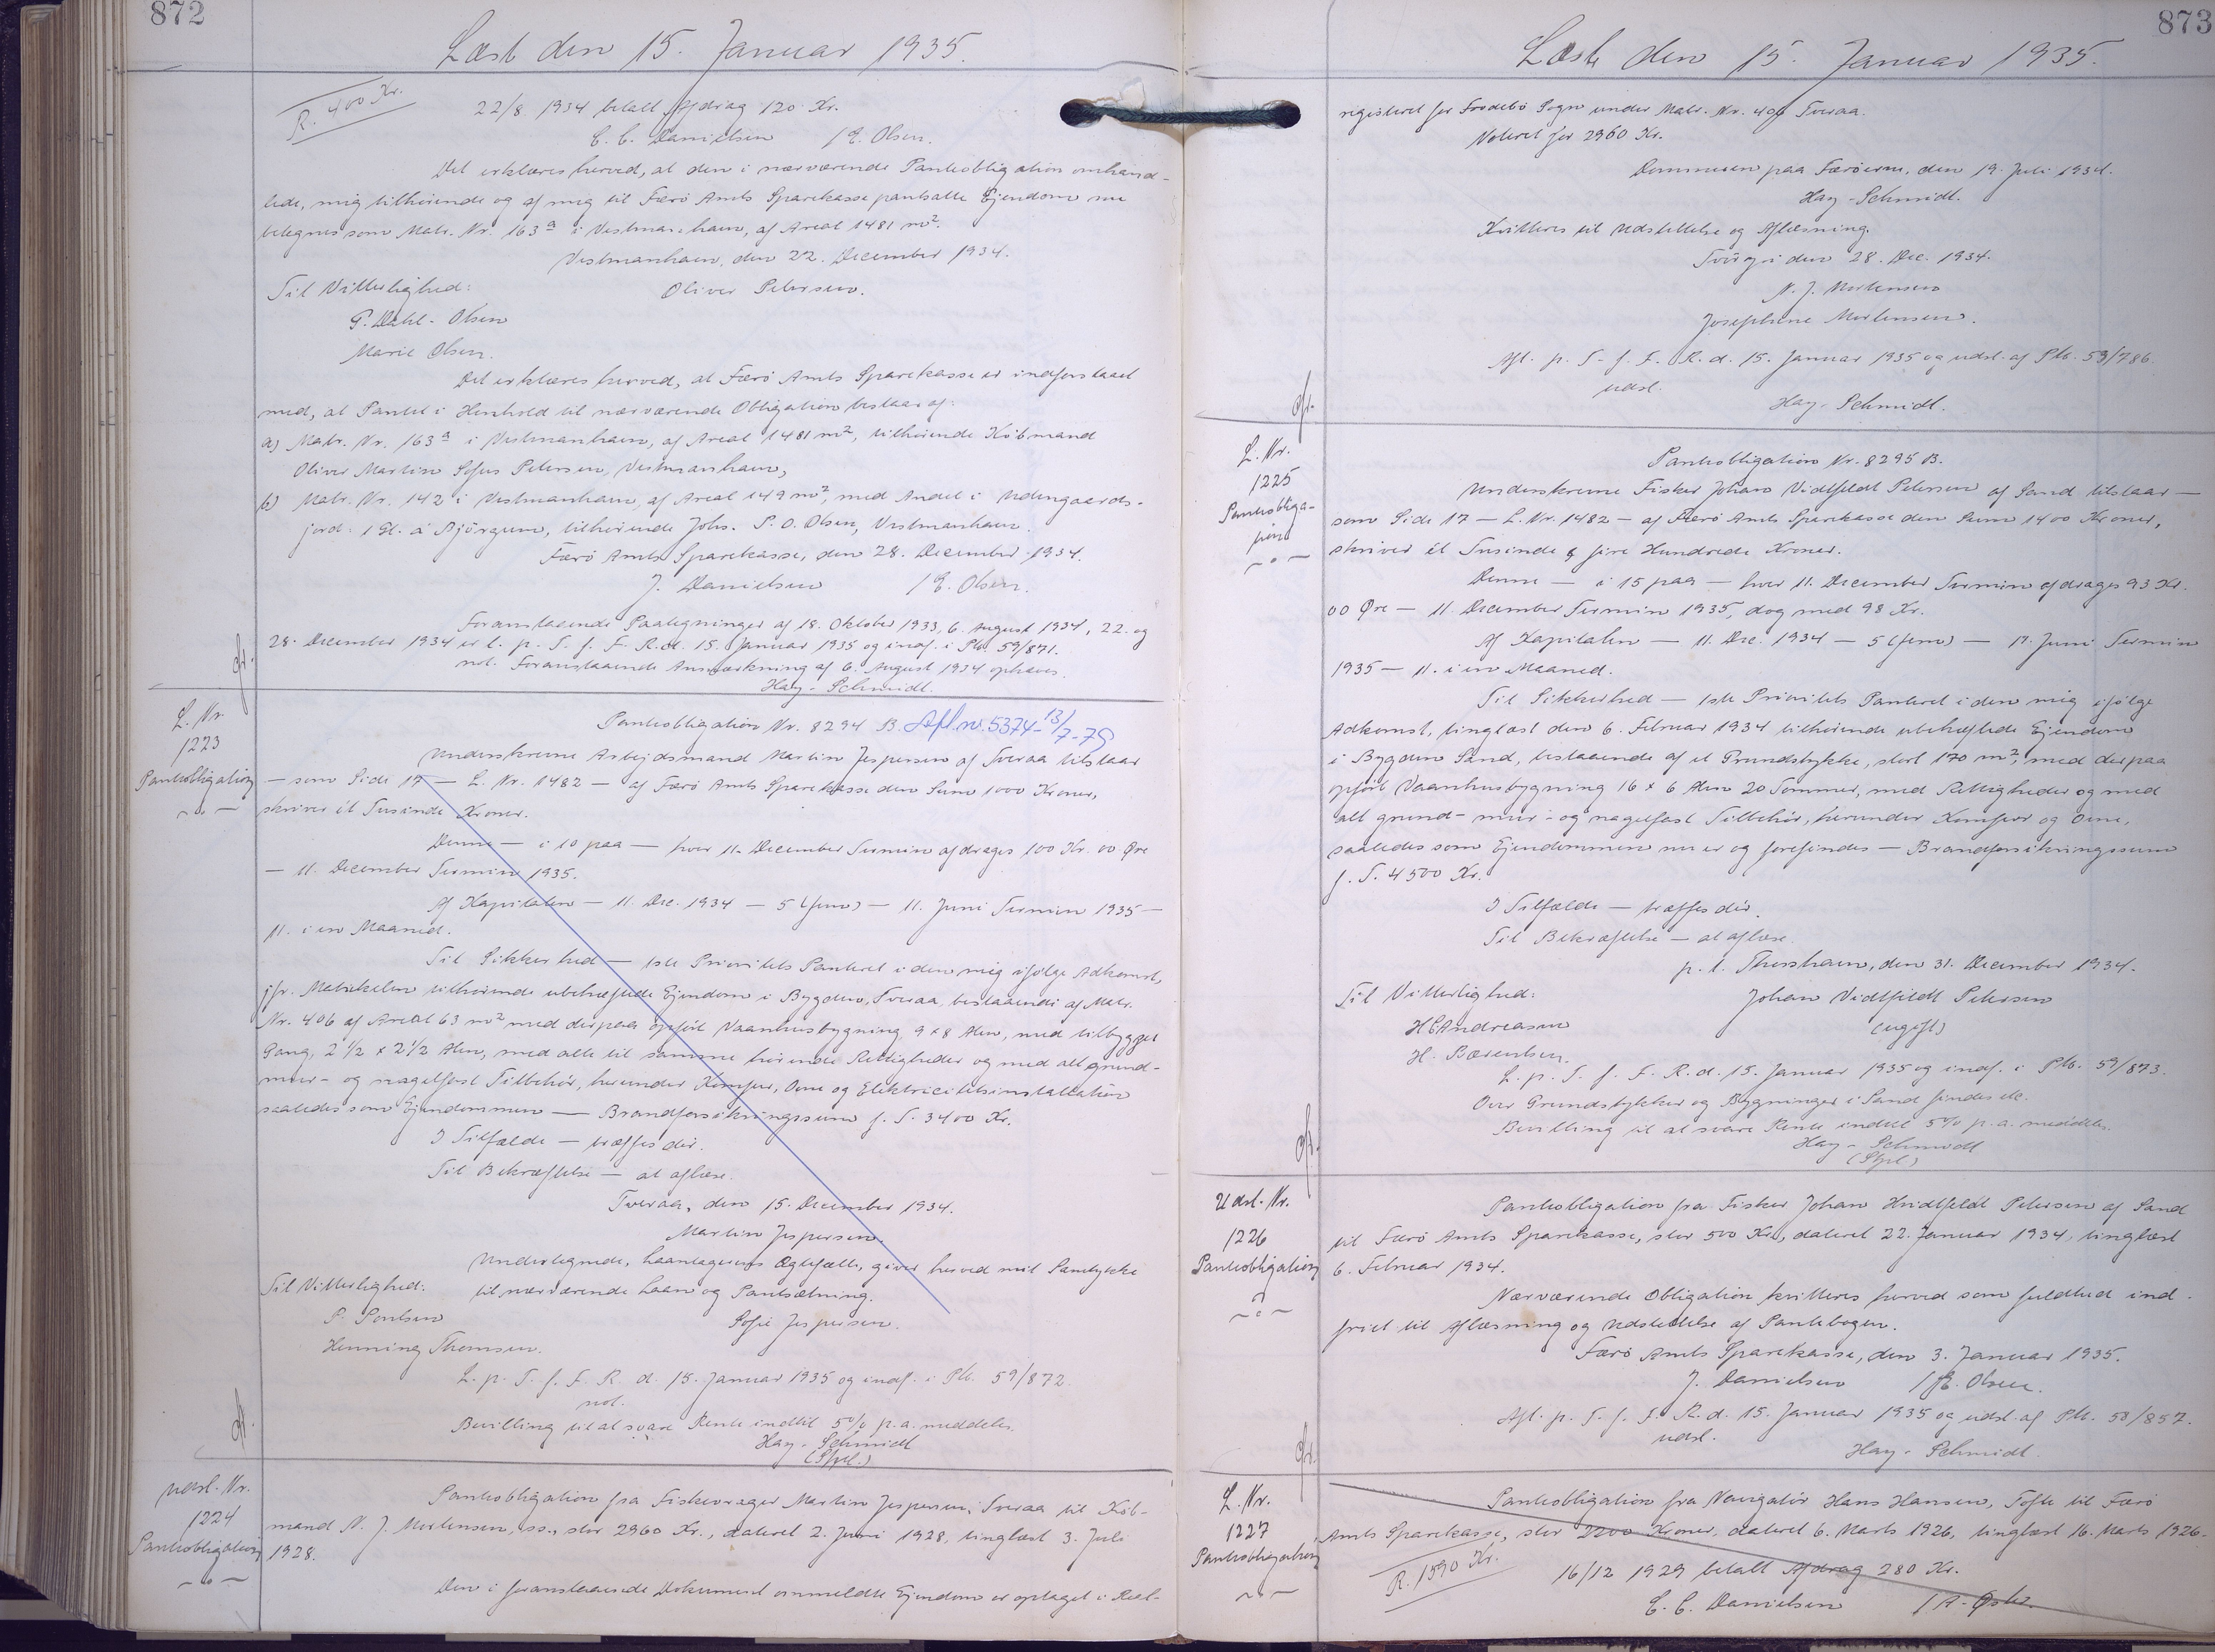 872
Læst den 15. Januar 1935.
R. 400 Kr.
22/8 1934 betalt Afdrag 120 Kr.
C. C. Danielsen /E. Olsen.
Det erklæres herved, at den i nærværende Pantobligation omhand-
lede, mig tilhørende og af mig til Færø Amts Sparekasse pantsatte Ejendom nu
betegnes som Matr. Nr. 163ª i Vestmanhavn, af Areal 1481 m².
Vestmanhavn, den 22. December 1934.
Til Vitterlighed: Oliver Petersen.
P. Dahl-Olsen
Marie Olsen.
Det erklæres herved, at Færø Amts Sparekasse er indforstaaet
med, at Pantet i Henhold til nærværende Obligation bestaar af:
a) Matr. Nr. 163ª i Vestmanhavn, af Areal 1481 m², tilhørende Købmand
Oliver Martin Sofus Petersen, Vestmanhavn,
b) Matr. Nr. 142 i Vestmanhavn, af Areal 149 m², med Andel i Udengaards-
jord: 1 Gl. á Björgum, tilhørende Johs. P. O. Olsen, Vestmanhavn.
Færø Amts Sparekasse, den 28. December 1934.
J. Danielsen /E. Olsen.
Foranstaaende Paategninger af 18. Oktober 1933, 6. August 1934, 22. og
28. December 1934 er l. p. T. f. F. R. d. 15. Januar 1935 og indf. i Pb. 59/871.
not. Foranstaaende Anmærkning af 6. August 1934 ophæves.
Hay-Schmidt.
L. Nr.
1223
Pantobligation
Pantobligation Nr. 8294 B. Afl. nr. 5374-13/7-79
Underskrevne Arbejdsmand Martin Jespersen af Tveraa tilstaar
— som Side 17 — L. Nr. 1482 — af Færø Amts Sparekasse den Sum 1000 Kroner,
skriver ét Tusinde Kroner.
Denne — i 10 paa — hver 11. December Termin afdrages 100 Kr. 00 Øre
— 11. December Termin 1935.
Af Kapitalen — 11. Dec. 1934 — 5 (fem) — 11. Juni Termin 1935 —
11. i en Maaned.
Til Sikkerhed — 1ste Prioritets Panteret i den mig ifølge Adkomst,
jfr. Matrikelen tilhørende ubehæftede Ejendom i Bygden, Tveraa, bestaaende af Matr.
Nr. 406 af Areal 63 m² med derpaa opført Vaanhusbygning, 9 x 8 Alen, med tilbygget
Gang, 2 1/2 x 2 1/2 Alen, med alle til samme hørende Rettigheder og med alt grund-
mur- og nagelfast Tilbehør, herunder Komfur, Ovne og Elektricitetsinstallation
saaledes som Ejendommen — Brandforsikringssum f. T. 3400 Kr.
I Tilfælde — træffes dér.
Til Bekræftelse — at aflæse.
Tveraa, den 15. December 1934.
Martin Jespersen.
Undertegnede, Laantagerens Ægtefælle, giver herved mit Samtykke
Til Vitterlighed: til nærværende Laan og Pantsætning.
P. Poulsen Sofie Jespersen.
Henning Thomsen.
L. p. T. f. F. R. d. 15. Januar 1935 og indf. i Pb. 59/872.
not.
Bevilling til at svare Rente indtil 5% p. a. meddeles.
Hay-Schmidt
(Stpl.)
Udsl. Nr.
1224
Pantobligation
Pantobligation fra Fiskevrager Martin Jespersen, Tveraa til Køb-
mand N. J. Mortensen, ss., stor 2960 Kr., dateret 2. Juni 1928, tinglæst 3. Juli
1928.
Den i foranstaaende Dokument ommeldte Ejendom er optaget i Real-
873
Læst den 15. Januar 1935.
registeret for Frodebö Sogn under Matr. Nr. 406 Tveraa.
Noteret for 2960 Kr.
Dommeren paa Færøerne, den 19. Juli 1934.
Hay-Schmidt.
Kvitteres til Udslettelse og Aflæsning.
Tvöroyri den 28. Dec. 1934.
N. J. Mortensen
Josephine Mortensen.
Afl. p. T. f. F. R. d. 15. Januar 1935 og udsl. af Pb. 53/786.
udsl.
Hay-Schmidt.
L. Nr.
1225
Pantobliga-
tion
Pantobligation Nr. 8295 B.
Underskrevne Fisker Johan Vidtfeldt Petersen af Sand tilstaar —
som Side 17 — L. Nr. 1482 — af Færø Amts Sparekasse den Sum 1400 Kroner,
skriver ét Tusinde & fire Hundrede Kroner.
Denne — i 15 paa — hver 11. December Termin afdrages 93 Kr.
00 Øre — 11. December Termin 1935, dog med 98 Kr.
Af Kapitalen — 11. Dec. 1934 — 5 (fem) — 11. Juni Termin
1935 — 11. i en Maaned.
Til Sikkerhed — 1ste Prioritets Panteret i den mig ifølge
Adkomst, tinglæst den 6. Februar 1934 tilhørende ubehæftede Ejendom
i Bygden Sand, bestaaende af et Grundstykke, stort 170 m², med derpaa
opført Vaanhusbygning 16 x 6 Alen 20 Tommer, med Rettigheder og med
alt grund- mur- og nagelfast Tilbehør, herunder Komfur og Ovne,
saaledes som Ejendommen nu er og forefindes — Brandforsikringssum
f. T. 4500 Kr.
I Tilfælde — træffes dér.
Til Bekræftelse — at aflæse.
p. t. Thorshavn, den 31. December 1934.
Til Vitterlighed: Johan Vidtfeldt Petersen
H C Andreasen (ugift)
H. Bærentsen.
L. p. T. f. F. R. d. 15. Januar 1935 og indf. i Pb. 59/873.
Over Grundstykker og Bygninger i Sand findes etc.
Bevilling til at svare Rente indtil 5% p. a. meddeles.
Hay-Schmidt
(Stpl.)
Udsl. Nr.
1226
Pantobligation
Pantobligation fra Fisker Johan Hvidtfeldt Petersen af Sand
til Færø Amts Sparekasse, stor 500 Kr., dateret 22. Januar 1934, tinglæst
6. Februar 1934.
Nærværende Obligation kvitteres herved som fuldtud ind-
friet til Aflæsning og Udslettelse af Pantebogen.
Færø Amts Sparekasse, den 3. Januar 1935.
J. Danielsen /E. Olsen.
Afl. p. T. f. F. R. d. 15. Januar 1935 og udsl. af Pb. 58/857.
udsl.
Hay-Schmidt.
L. Nr.
1227
Pantobligation
Pantobligation fra Navigatör Hans Hansen, Tofte til Færø
Amts Sparekasse, stor 2200 Kroner, dateret 6. Marts 1926, tinglæst 16. Marts 1926.
R. 1590 Kr.
16/12 1929 betalt Afdrag 280 Kr.
C. C. Danielsen